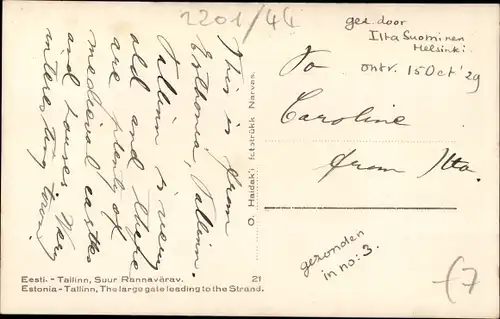 2201/44
gez. door
Ilta Suominen
Helsinki.
ontv. 15 Oct '29
To
Caroline
from Ilta.
gezonden
in no: 3.
(7
This is from
Esthonia, Tallinn.
Tallinn is very
old and there
are plenty of
medieval castles
and houses. Very
interesting town.
O. Haidak'i fototrükk Narvas.
Eesti. - Tallinn, Suur Rannavärav. 21
Estonia - Tallinn, The large gate leading to the Strand.